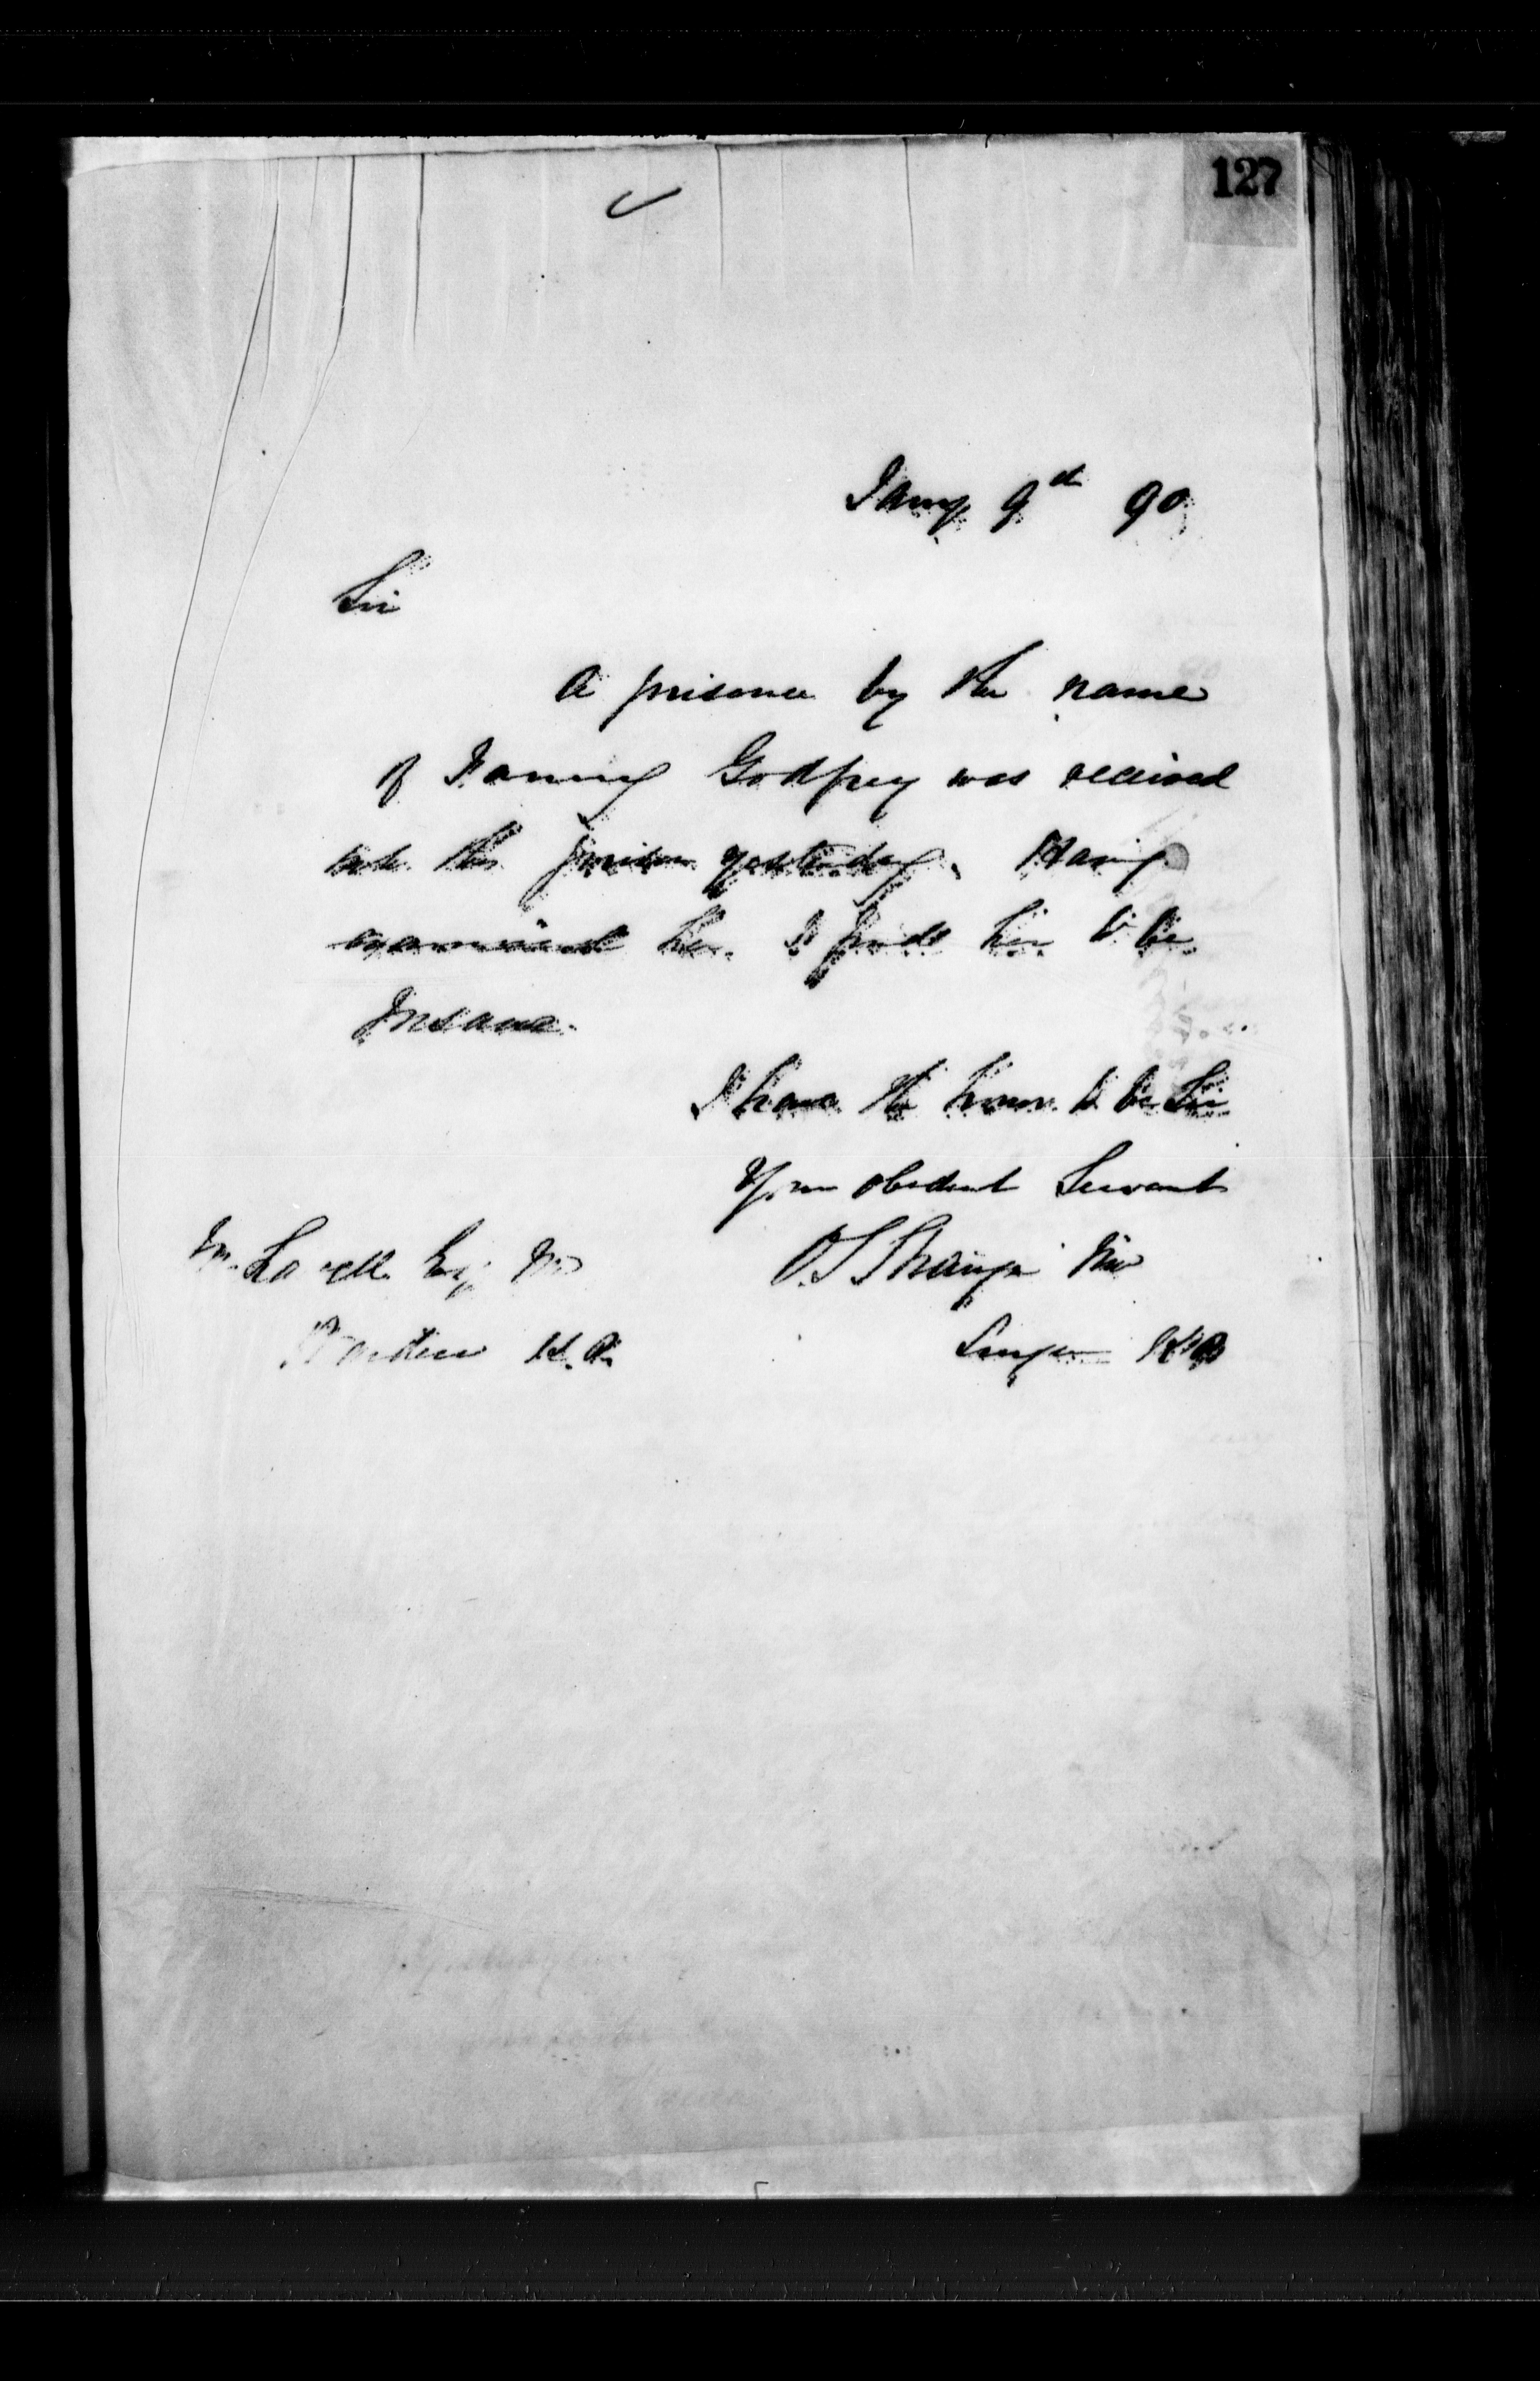 127
Jany 9th 90
Sir
A prisoner by the name
of Fanny Godfrey was received
into this prison yesterday. Having
examined her I find her to be
Insane.
I have the honor to be Sir
Your obedient Servant
O.S. Strange MD
Surgeon K.P.
M. Lavell Esq MD
Warden K.P.